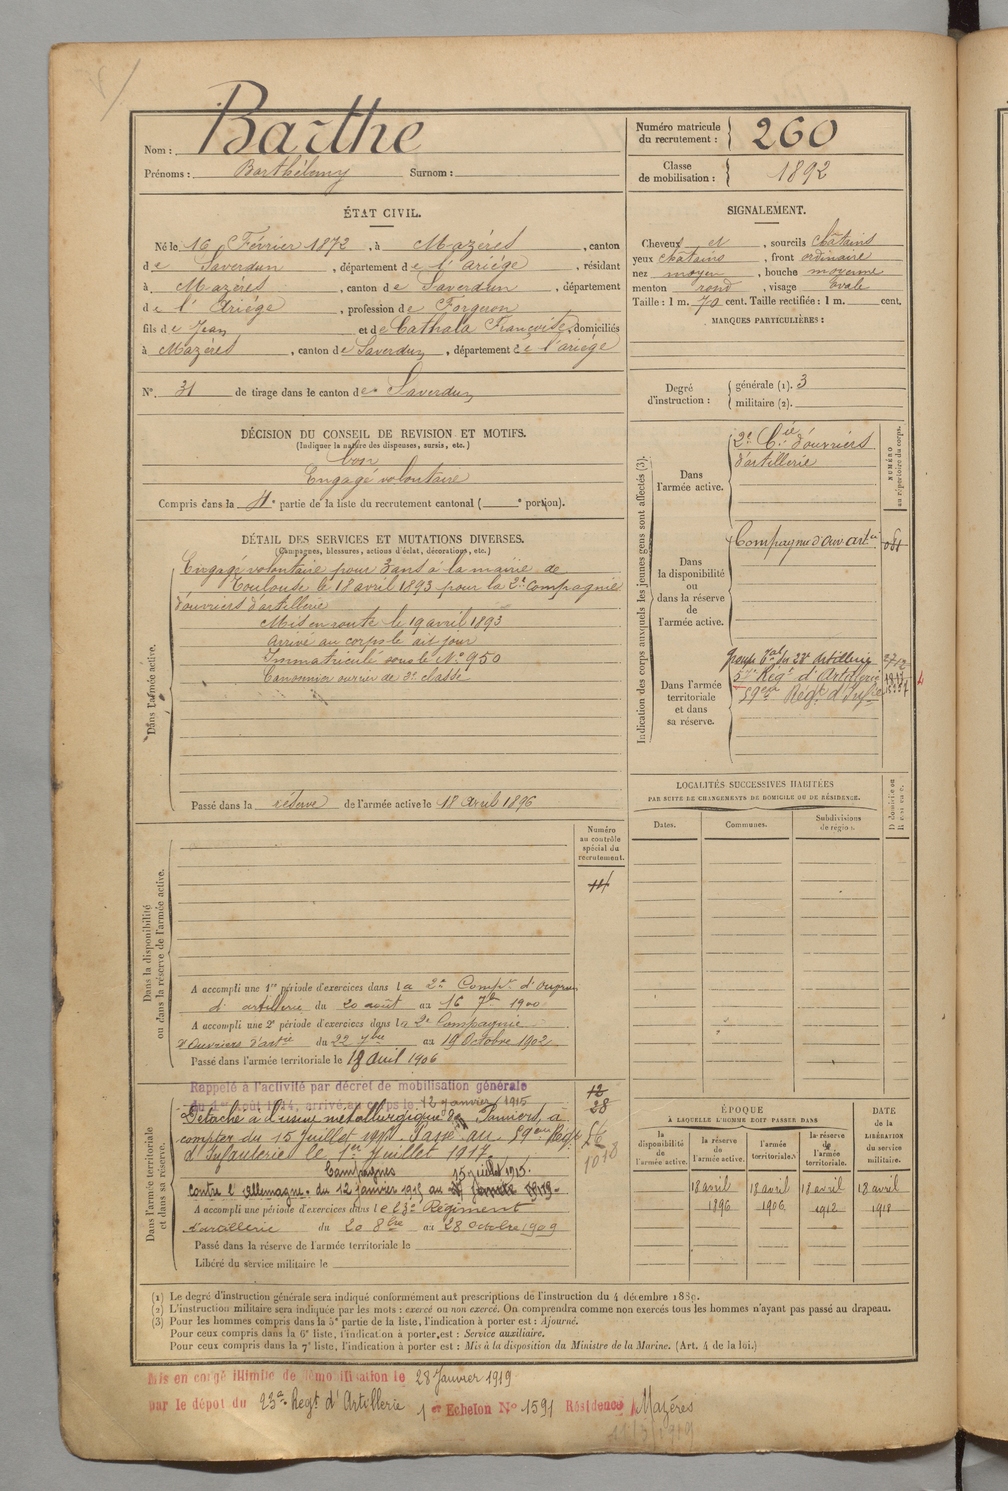 Nom : Barthe
Prénoms : Barthélemy Surnom :
Numéro matricule du recrutement : 260
Classe de mobilisation : 1892
ÉTAT CIVIL.
Né le 16 Février 1872, à Mazères, canton
de Saverdun, département de l'Ariège, résidant
à Mazères, canton de Saverdun, département
de l'Ariège, profession de Forgeron
fils de Jean et de Cathala Françoise domiciliés
à Mazères, canton de Saverdun, département de l'ariège
N° 31 de tirage dans le canton de Saverdun
SIGNALEMENT.
Cheveux et, sourcils châtains
yeux châtains, front ordinaire
nez moyen, bouche moyenne
menton rond, visage ovale
Taille : 1 m. 70 cent. Taille rectifiée : 1 m. cent.
MARQUES PARTICULIÈRES :
Degré d'instruction : générale (1). 3
militaire (2).
DÉCISION DU CONSEIL DE REVISION ET MOTIFS.
(Indiquer la nature des dispenses, sursis, etc.)
bon
Engagé volontaire
Compris dans la 4e partie de la liste du recrutement cantonal ( e portion).
DÉTAIL DES SERVICES ET MUTATIONS DIVERSES.
(Campagnes, blessures, actions d'éclat, décorations, etc.)
Dans l'armée active.
Engagé volontaire pour 3 ans à la mairie de
Toulouse le 18 avril 1893 pour la 2e Compagnie
d'ouvriers d'artillerie
Mis en route le 19 avril 1893
Arrivé au corps le dit jour
Immatriculé sous le N° 950
Canonnier ouvrier de 3e classe
Passé dans la réserve de l'armée active le 18 avril 1896
Indication des corps auxquels les jeunes gens sont affectés (3).
NUMÉRO au répertoire du corps.
Dans l'armée active.
2e Cie d'ouvriers
d'artillerie
Dans la disponibilité ou dans la réserve de l'armée active.
Compagnie d'Ouv artie
Dans l'armée territoriale et dans sa réserve.
groupe tal du 23e artillerie
Régt d'Artillerie
59eme Régt d'Infie
LOCALITÉS SUCCESSIVES HABITÉES
PAR SUITE DE CHANGEMENTS DE DOMICILE OU DE RÉSIDENCE.
Dates. Communes. Subdivisions de région.
Dans la disponibilité ou dans la réserve de l'armée active.
Numéro au contrôle spécial du recrutement.
A accompli une 1re période d'exercices dans la 2e Compie d'Ouvriers
d'artillerie du 20 août au 16 7bre 1900
A accompli une 2e période d'exercices dans la 2e Compagnie
d'Ouvriers d'artie du 22 7bre au 19 Octobre 1902
Passé dans l'armée territoriale le 18 Avril 1906
Dans l'armée territoriale et dans sa réserve.
Rappelé à l'activité par décret de mobilisation générale
du 1er Août 1914, arrivé au corps le 12 janvier 1915
Détaché à l'usine métallurgique de Pamiers, à
compter du 15 Juillet 1915. Passé au 59eme Régt
d'Infanterie le 1er Juillet 1917.
12
28
Campagnes
15 juillet 1915.
contre l'allemagne. du 12 janvier 1915 au
A accompli une période d'exercices dans le 23e Régiment
d'artillerie du 20 8bre au 28 octobre 1909
Passé dans la réserve de l'armée territoriale le
Libéré du service militaire le
ÉPOQUE
À LAQUELLE L'HOMME DOIT PASSER DANS
la disponibilité de l'armée active. la réserve de l'armée active. l'armée territoriale. la réserve de l'armée territoriale.
DATE DE LA LIBÉRATION du service militaire.
18 avril 1896 18 avril 1906 18 avril 1912 18 avril 1918
(1) Le degré d'instruction générale sera indiqué conformément aux prescriptions de l'instruction du 4 décembre 1889.
(2) L'instruction militaire sera indiquée par les mots : exercé ou non exercé. On comprendra comme non exercés tous les hommes n'ayant pas passé au drapeau.
(3) Pour les hommes compris dans la 5e partie de la liste, l'indication à porter est : Ajourné.
Pour ceux compris dans la 6e liste, l'indication à porter est : Service auxiliaire.
Pour ceux compris dans la 7e liste, l'indication à porter est : Mis à la disposition du Ministre de la Marine. (Art. 4 de la loi.)
Mis en congé illimité de démobilisation le 28 Janvier 1919
par le dépôt du 23e Regt d'Artillerie 1er Echelon N° 1591 Résidence Mazères
11/3/1919